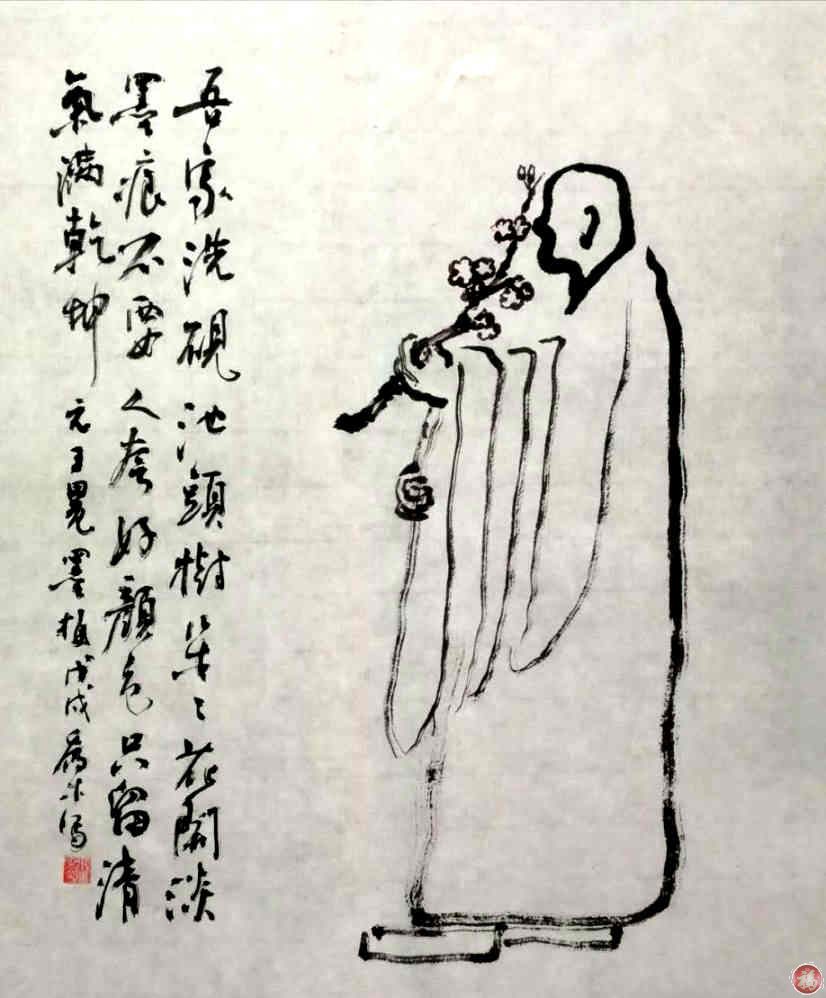 吾家洗硯池頭樹朵々花開淡
墨痕不要人夸好顏色只留清
氣滿乾坤 元王冕墨梅戊戌